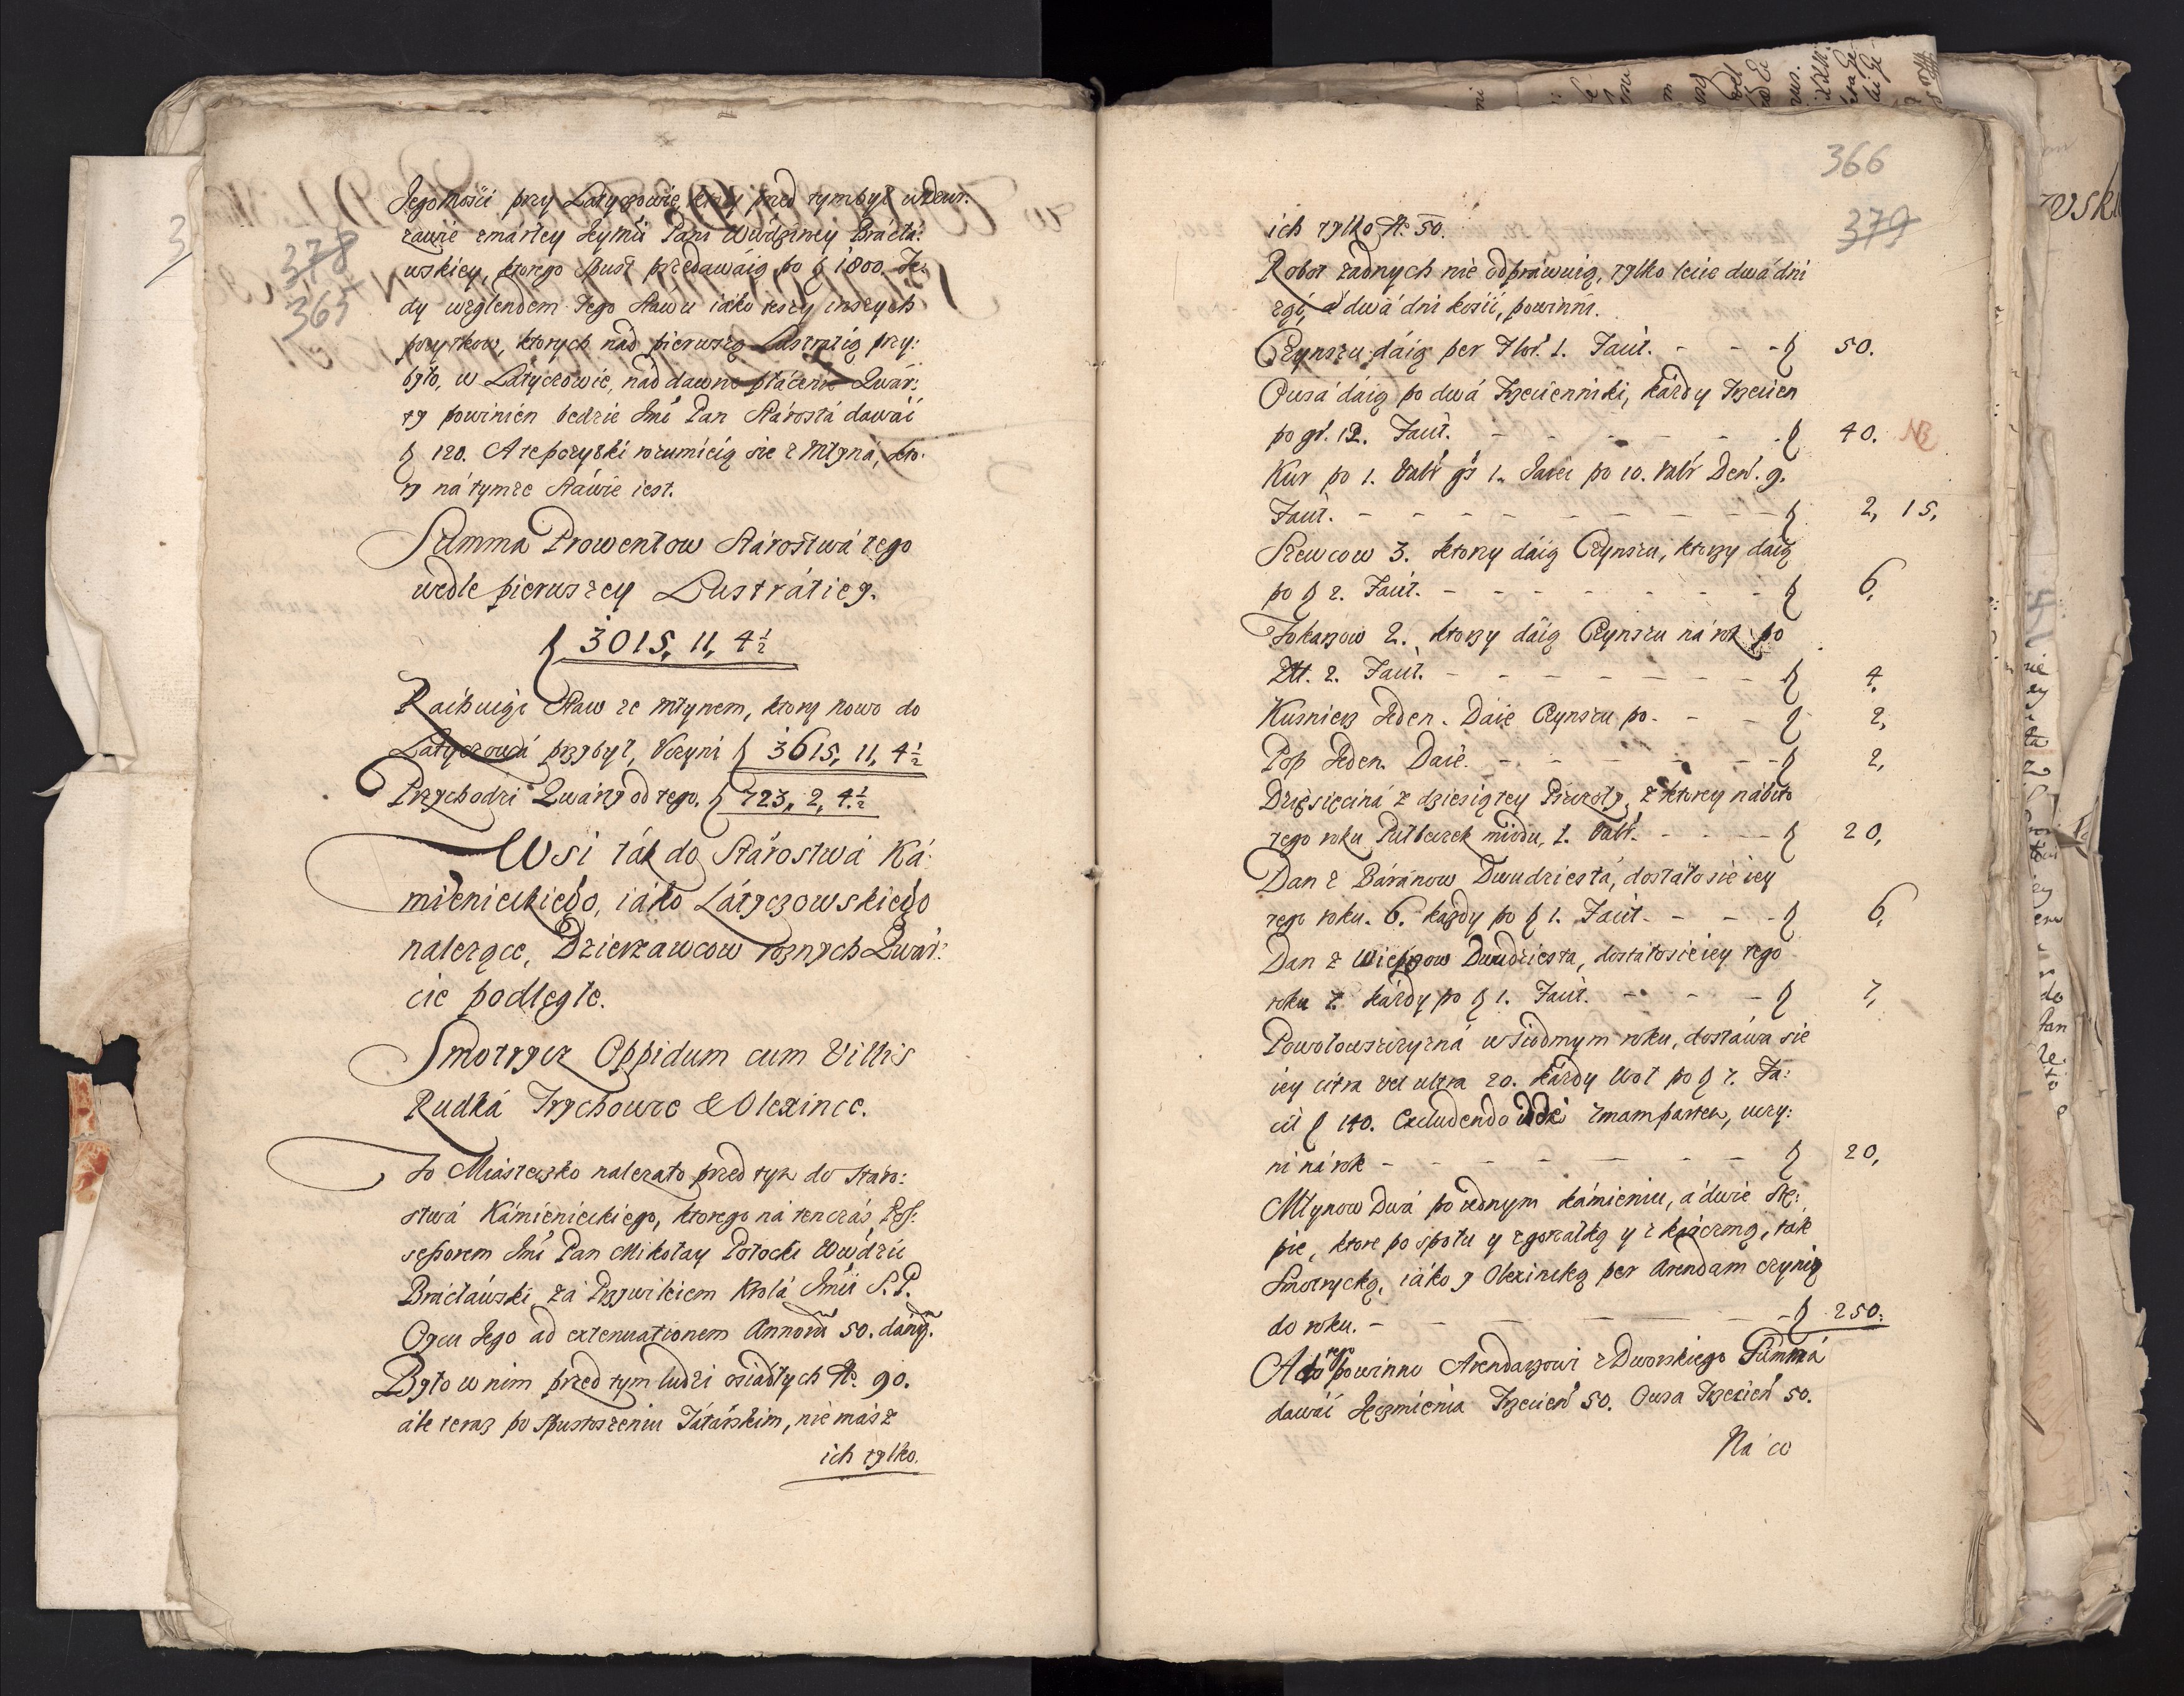 378
365
Jego Mości przy Latyczowie, ktory przed tym był w dzier:
zawie zmarłey Jeymści Pani Wwdziney Bracła:
wskiey, ktorego Spust przedawáią po ƒ 1800. Te:
dy względem tego stáwu iáko też y inszych
pożytkow, ktorych nád pierwszą Lustratią przy:
było, w Latyczowie, nád dawne płácenie Quár:
ty powinien bedzie Jmć Pan Stárostá dawáć
ƒ 120. A te pożytki rozumieią sie z Młyná, kto:
ry ná tymże stáwie iest.
Summa Prowentow Stárostwá tego
wedle pierwszey Lustrátiey.
ƒ 3015, 11, 4½
Ráchuiąc Staw ze młynem, ktory nowo do
Latyczowá przybył, Uczyni ƒ 3615, 11, 4½
Przychodzi Quárty od tego. ƒ 723, 2, 4½
Wsi ták do Stárostwá Ká:
mienieckiego, iáko Látyczowskiego
należące, Dzierzawcow roznych Quár:
cie podległe.
Smotrycz Oppidum cum Villis
Rudká Trychowce & Olexince.
To Miásteczko należáło przed tym do Stáro:
stwá Kámienieckiego, ktorego ná tenczás Pos:
sessorem Jmć Pan Mikołay Potocki Wwdzic
Brácłáwski, zá Przywileiem Krolá Jmći S. P.
Oycá Jego ad extenuationem Annorũ 50. dánym.
Było w nim przed tym ludzi osiádłych No. 90.
ále teraz po spustoszeniu Tátárskim, nie mász
ich tylko.
366
379
ich tylko No. 50.
Robot żadnych nie odpráwuią, tylko lecie dwá dni
żąć, á dwá dni kosić, powinni.
Czynszu dáią per Flor. 1. Facit. - - - ƒ 50.
Owsá dáią po dwá Trzecienniki, káżdy Trzecien
po gr. 12. Facit. - - - - - - ƒ 40. NB
Kur po 1. Valr gr 1. Jaiec po 10. Valr Den. 9.
Facit. - - - - - - - - - ƒ 2, 15,
Szewcow 3. ktorzy dáią Czynszu, ktorzy dáią
po ƒ 2. Facit. - - - - - - - - ƒ 6,
Tokarzow 2. ktorzy dáią Czynszu ná rok po
Zło. 2. Facit. - - - - - - - ƒ 4,
Kusnierz Jeden. Daie Czynszu po - - - ƒ 2,
Pop Jeden. Daie. - - - - - - ƒ 2,
Dziesięciná z dziesiątey Pszczoły, z ktorey nábito
tego roku Pułbeczek miodu, 1. Valr. - - - - ƒ 20,
Dan z Báránow Dwudziesta, dostáło sie iey
tego roku. 6. káżdy po ƒ 1. Facit. - - - ƒ 6,
Dan z Wieprzow Dwudziesta, dostáło sie iey tego
roku 7. káżdy po ƒ 1. Facit. - - - - ƒ 7,
Powołowszczyzná w siodmym roku, dostáwa sie
iey citra vel ultra 20. káżdy Woł po ƒ 7. Fa:
cit ƒ 140. Excludendo 7mam partem, uczy:
ni ná rok - - - - - - - - ƒ 20,
Młynow Dwá po iednym kámieniu, á dwie Stę:
pie, ktore po społu y z gorzałką y z kárczmą, ták
Smotrycką, iáko y Olexinską per Arendam czynią
do roku. - - - - - - ƒ 250.
A do tego powinno Arendarzowi z Dworskiego Gumná
dawáć Jęczmienia Trzecien 50. Owsa Trzecień 50.
Ná co